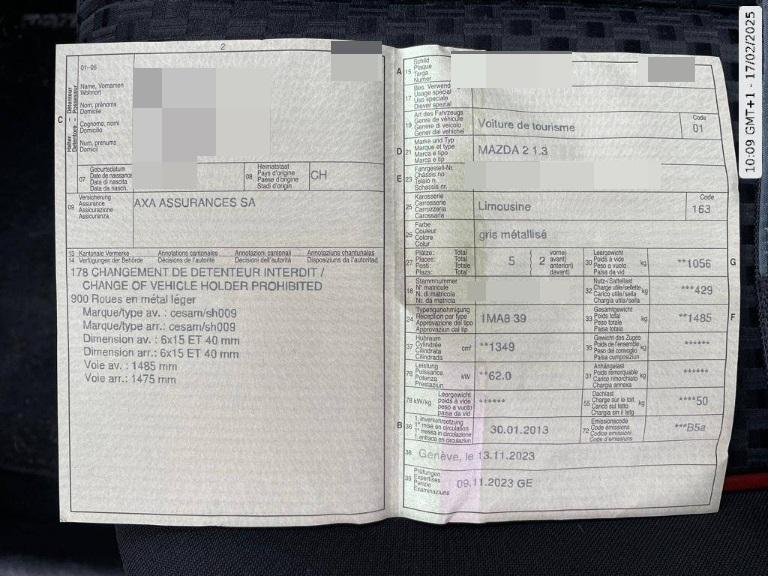 2
01-06
Name, Vornamen
Wohnort
Nom, prénoms
Domicile
Cognome, nomi
Domicilio
Num, prenums
Domicil
C
07
Geburtsdatum
Date de naissance
Data di nascita
Data da nasch.
08
Heimatstaat
Pays d'origine
Paese d'origine
Stadi d'origin
CH
09
Versicherung
Assurance
Assicurazione
Assicuranza
AXA ASSURANCES SA
13 Kantonale Vermerke Annotations cantonales Annotazioni cantonali Annotaziuns chantunalas
14 Verfügungen der Behörde Décisions de l'autorité Decisioni dell'autorità Disposiziuns da l'autoritad
178 CHANGEMENT DE DETENTEUR INTERDIT /
CHANGE OF VEHICLE HOLDER PROHIBITED
900 Roues en métal léger
Marque/type av. : cesam/sh009
Marque/type arr.: cesam/sh009
Dimension av. : 6x15 ET 40 mm
Dimension arr.: 6x15 ET 40 mm
Voie av. : 1485 mm
Voie arr.: 1475 mm
A 15
Schild
Plaque
Targa
Numer
17
Bes. Verwend
Usage spécial
Uso speciale
Diever spezial
19
Art des Fahrzeugs
Genre de véhicule
Genere di veicolo
Gener dal vehichel
Voiture de tourisme
Code
01
D 21
Marke und Typ
Marque et type
Marca e tipo
Marca e tip
MAZDA 2 1.3
E 23
Fahrgestell-Nr.
Châssis no
Telaio n.
Schassis nr.
25
Karosserie
Carrosserie
Carrozzeria
Carossaria
Limousine
Code
163
26
Farbe
Couleur
Colore
Colur
gris métallisé
27
Plätze: Total
Places: Total
Posti: Totale
Plazs: Total
5
( 2
vorne)
avant)
anteriori)
davant)
30
Leergewicht
Poids à vide
Peso a vuoto
Paisa da vid
kg
**1056
G
18
Stammnummer
N° matricule
N. di matricola
Nr. da matricla
32
Nutz-/Sattellast
Charge utile/sellette
Carico utile/sella
Chargia utila/sella
kg
***429
24
Typengenehmigung
Réception par type
Approvazione del tipo
Approvaziun dal tip
1MA8 39
33
Gesamtgewicht
Poids total
Peso totale
Paisa totala
kg
**1485
F
37
Hubraum
Cylindrée
Cilindrata
Cilindrada
cm³
**1349
35
Gewicht des Zuges
Poids de l'ensemble
Peso del convoglio
Paisa cumposiziun
kg
******
76
Leistung
Puissance
Potenza
Prestaziun
kW
**62.0
31
Anhängelast
Poids remorquable
Carico rimorchiato
Chargia annexa
kg
******
78 kW/kg
Leergewicht
poids à vide
peso a vuoto
paisa da vid
******
55
Dachlast
Charge sur le toit
Carico sul tetto
Chargia sin il tetg
kg
****50
B 36
1. Inverkehrsetzung
1re mise en circulation
1. messa in circolazione
1. entrada en circulaziun
30.01.2013
72
Emissionscode
Code émissions
Codice emissioni
Code d'emissiuns
***B5a
38
Genève, le 13.11.2023
39
Prüfungen
Expertises
Perizie
Examinaziuns
09.11.2023 GE
10:09 GMT+1 - 17/02/2025